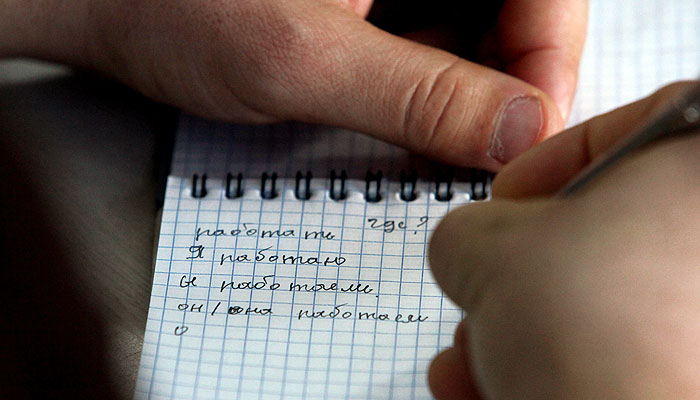 работать где?
Я работаю
ы работаешь
он/она работает
о